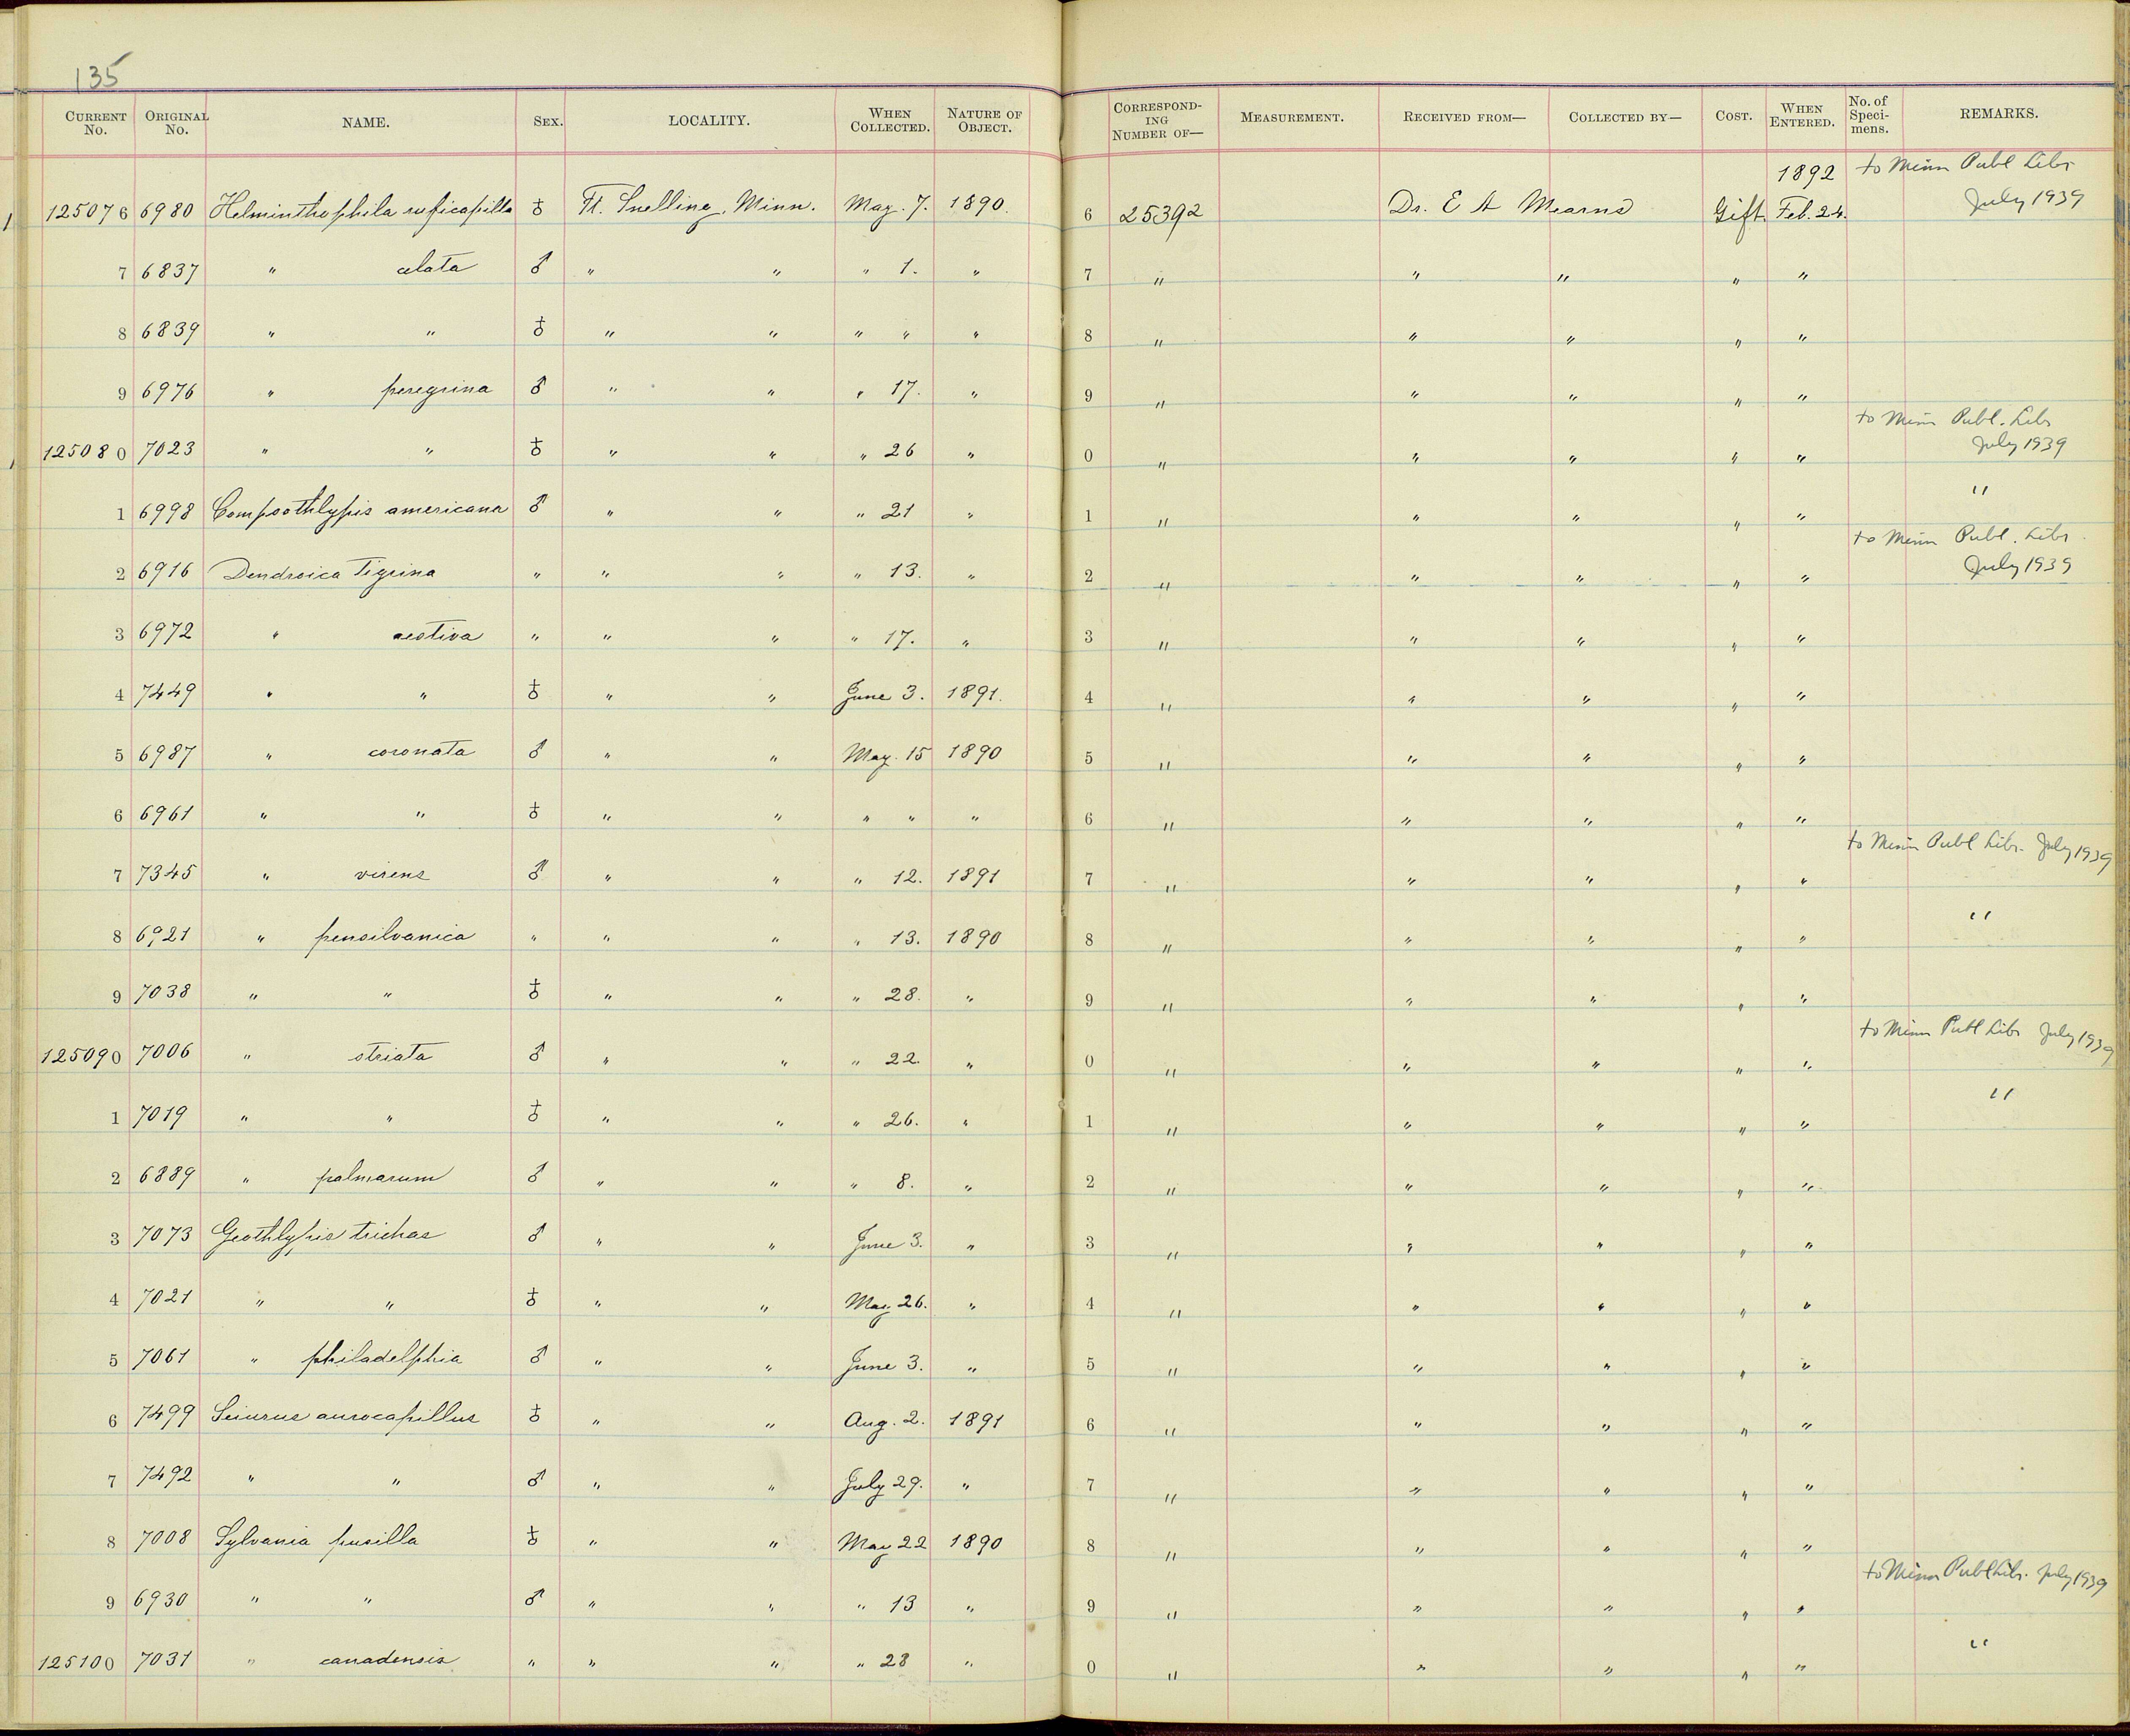 135
CURRENT No. ORIGINAL No. NAME. SEX. LOCALITY. WHEN COLLECTED. NATURE OF OBJECT. CORRESPONDING NUMBER OF— MEASUREMENT. RECEIVED FROM— COLLECTED BY— COST. WHEN ENTERED. No. of Specimens. REMARKS.
125076 6980 Helminthophila ruficapilla ♁ Ft. Snelling, Minn. May. 7. 1890. 6 25392 Dr. E A Mearns Gift. 1892 Feb. 24. to Minn Publ Libr July 1939
7 6837 " celata ♂ " " " 1. " 7 " " " " "
8 6839 " " ♁ " " " " " 8 " " " " "
9 6976 " peregrina ♂ " " " 17. " 9 " " " " "
125080 7023 " " ♁ " " " 26 " 0 " " " " " to Minn Publ. Libr July 1939
1 6998 Compsothlypis americana ♂ " " " 21 " 1 " " " " " "
2 6916 Dendroica tigrina " " " " 13. " 2 " " " " " to Minn Publ. Libr. July 1939
3 6972 " aestiva " " " " 17. " 3 " " " " "
4 7449 " " ♁ " " June 3. 1891. 4 " " " " "
5 6987 " coronata ♂ " " May. 15 1890 5 " " " " "
6 6961 " " ♁ " " " " " 6 " " " " "
7 7345 " virens ♂ " " " 12. 1891 7 " " " " " to Minn Publ Libr. July 1939
8 6921 " pensilvanica " " " " 13. 1890 8 " " " " " "
9 7038 " " ♁ " " " 28. " 9 " " " " "
125090 7006 " striata ♂ " " " 22. " 0 " " " " " to Minn Publ Libr July 1939
1 7019 " " ♁ " " " 26. " 1 " " " " " "
2 6889 " palmarum ♂ " " " 8. " 2 " " " " "
3 7073 Geothlypis trichas ♂ " " June 3. " 3 " " " " "
4 7021 " " ♁ " " May. 26. " 4 " " " " "
5 7061 " philadelphia ♂ " " June 3. " 5 " " " " "
6 7499 Seiurus aurocapillus ♁ " " Aug. 2. 1891 6 " " " " "
7 7492 " " ♂ " " July 29. " 7 " " " " "
8 7008 Sylvania pusilla ♁ " " May 22 1890 8 " " " " "
9 6930 " " ♂ " " " 13 " 9 " " " " " to Minn Publ Libr. July 1939
125100 7031 " canadensis " " " " 28 " 0 " " " " " "